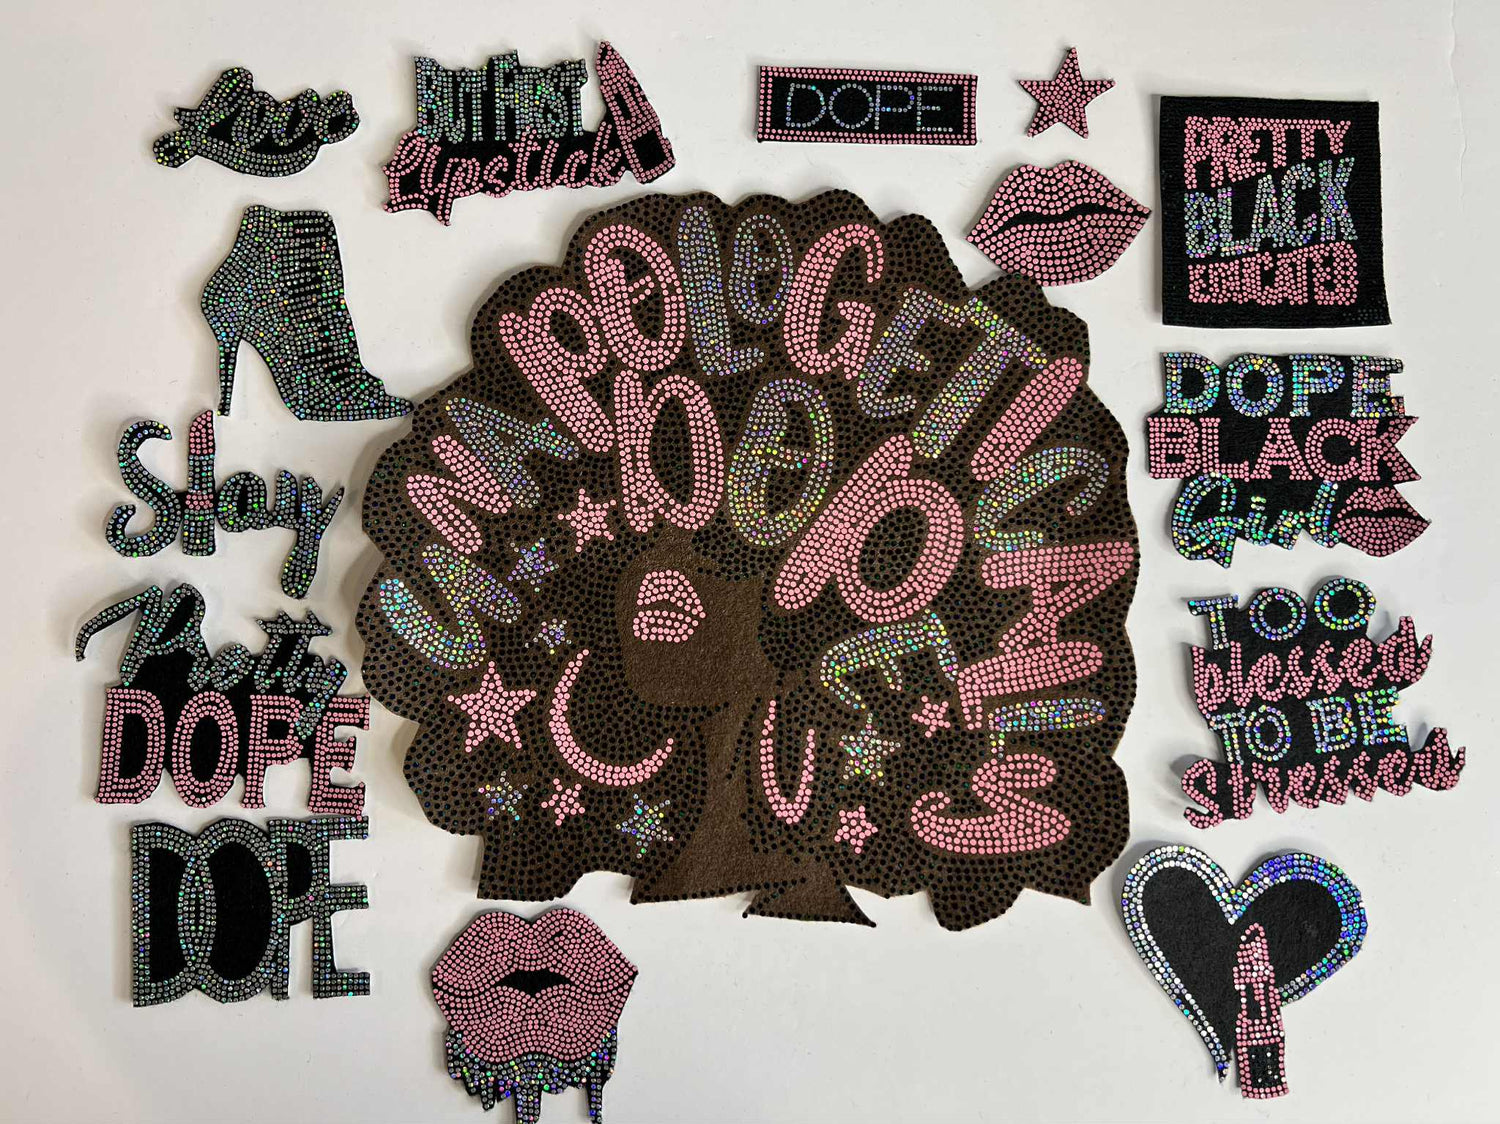 Love
BUT FIRST
lipstick
DOPE
PRETTY
BLACK
EDUCATED
UNAPOLOGETICALLY
DOPE
Slay
DOPE
BLACK
Girl
Pretty
DOPE
TOO
blessed
TO BE
Stressed
DOPE